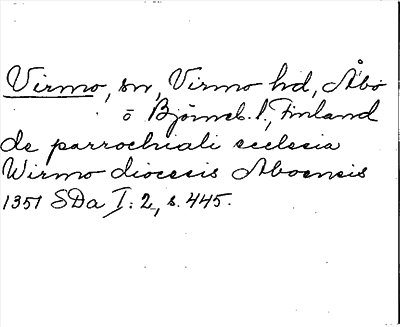 Virmo, sn, Virmo hd, Åbo
o Björneb. l., Finland
de parrochiali ecclesia
Wirmo diocesis Aboensis
1351 SDa I: 2, s. 445.